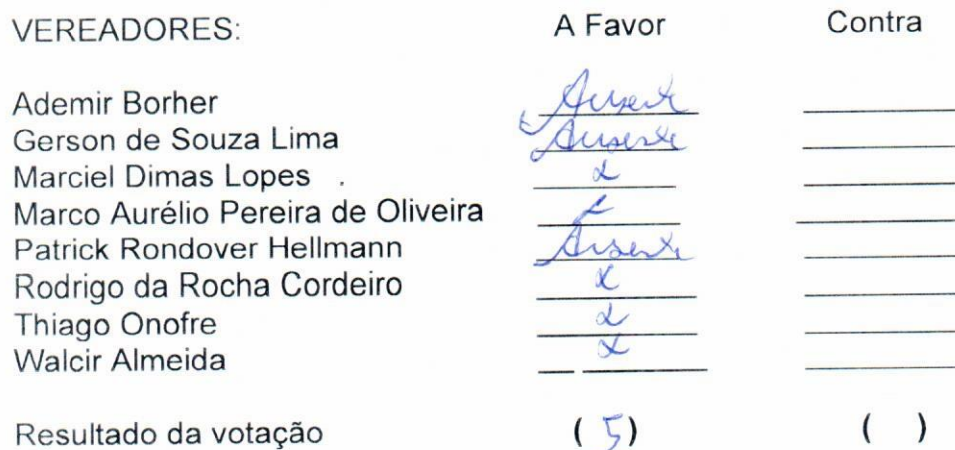 VEREADORES: A Favor Contra
Ademir Borher Ausente
Gerson de Souza Lima Ausente
Marciel Dimas Lopes . x
Marco Aurélio Pereira de Oliveira x
Patrick Rondover Hellmann Ausente
Rodrigo da Rocha Cordeiro x
Thiago Onofre x
Walcir Almeida x
Resultado da votação ( 5 ) ( )